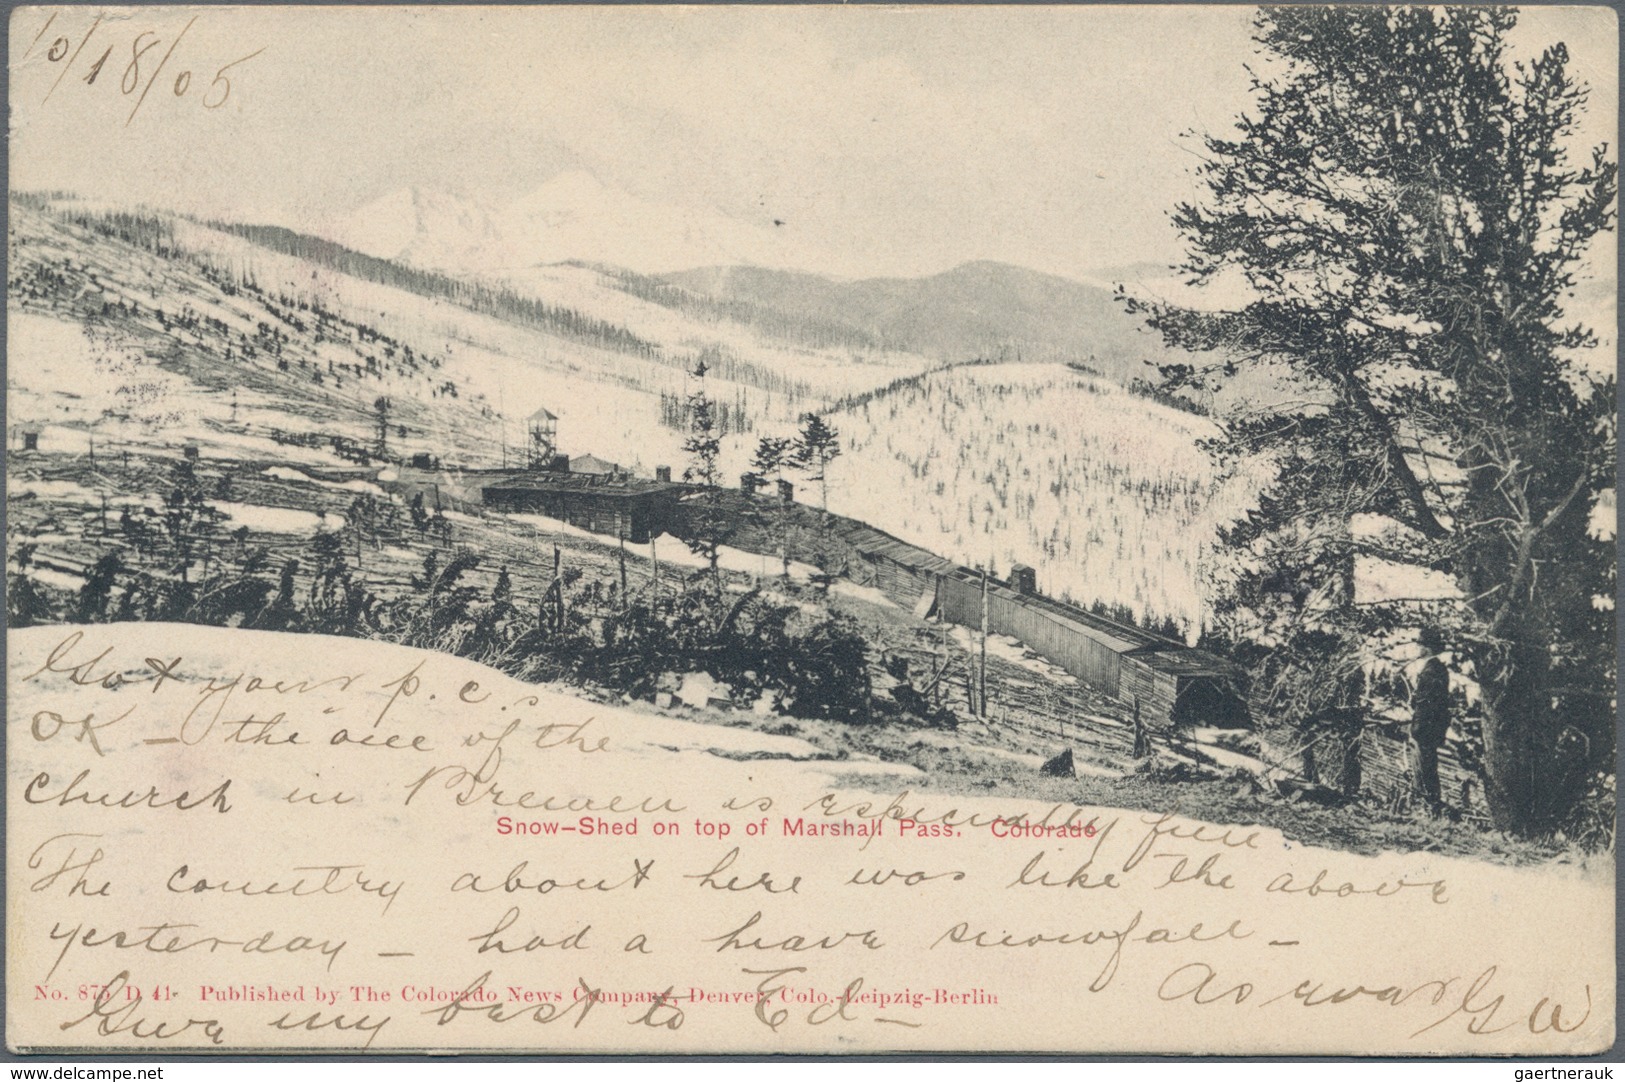 10/18/05
Got your p.c.
OK – the one of the
church in Bremen is especially fine
Snow-Shed on top of Marshall Pass. Colorado
The country about here was like the above
yesterday – had a heavy snowfall –
As ever G W
No. 875 D 41 Published by The Colorado News Company, Denver, Colo.-Leipzig-Berlin
Give my best to Ed –
www.delcampe.net
gaertnerauk